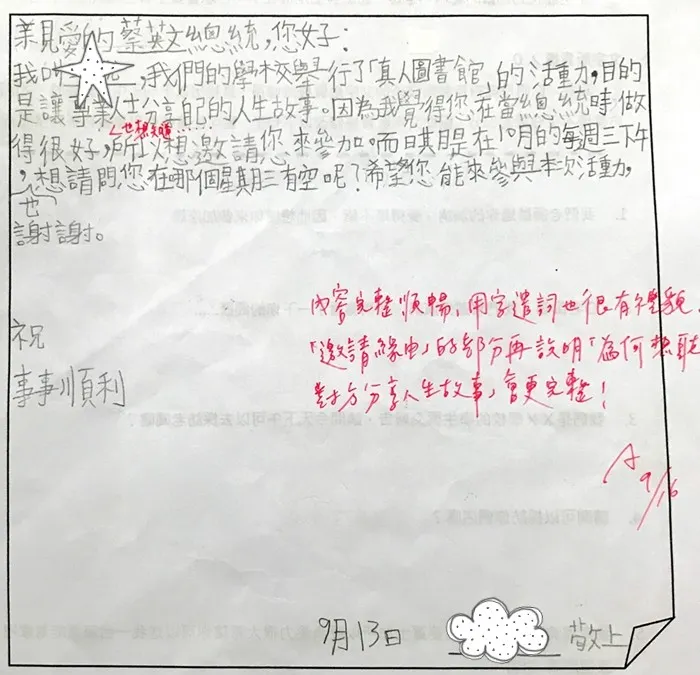 親愛的蔡英文總統，您好：
我，我們的學校舉行了「真人圖書館」的活動，目的
是讓專業人士分享自己的人生故事。因為我覺得您在當總統時做
得很好，所以想邀請您來參加。而日期是在10月的每週三下午
，想請問您在哪個星期三有空呢？希望您能來參與本次活動，
也
謝謝。
內容完整順暢，用字遣詞也很有禮貌。
「邀請緣由」的部分再說明「為何想聽
對方分享人生故事」會更完整！
A
9/16
祝
事事順利
9月13日
敬上